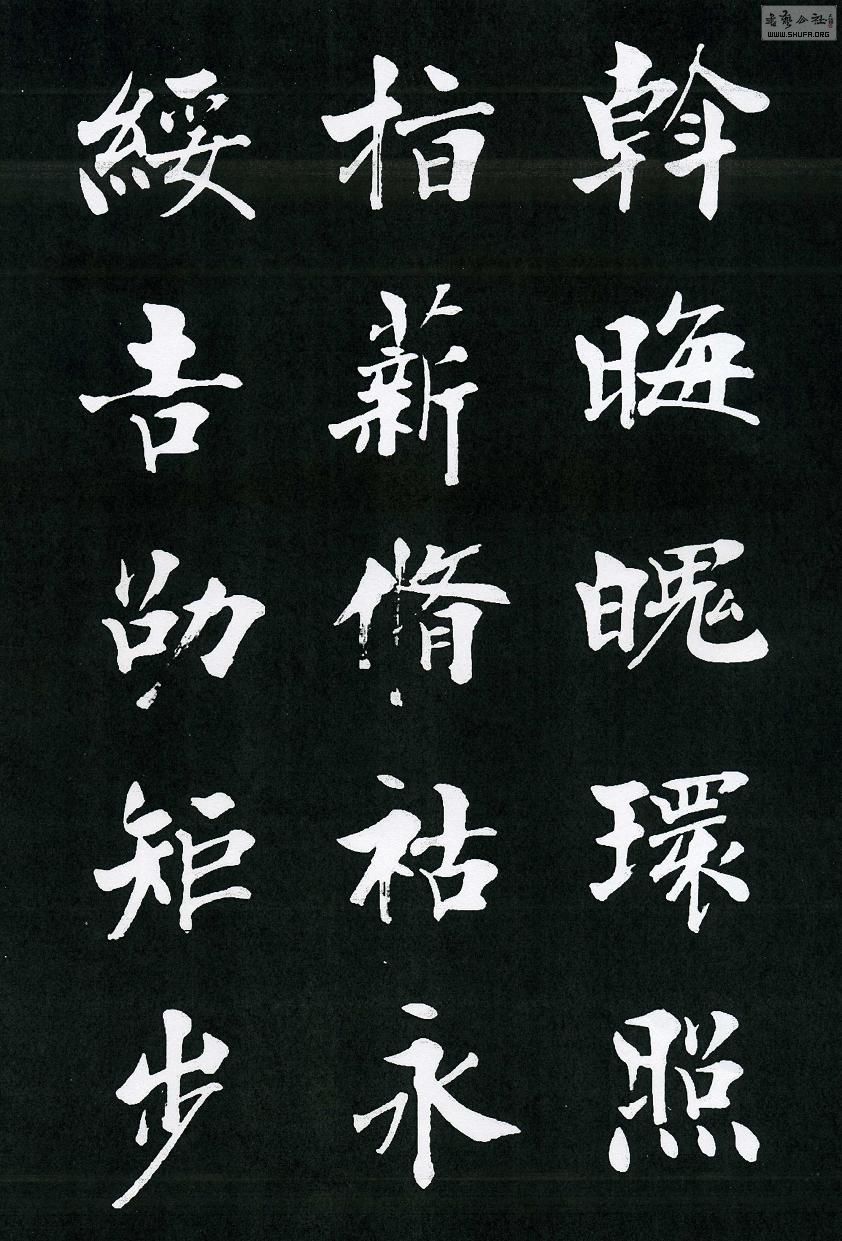 斡晦魄環照
指薪脩祜永
綏吉劭矩步
書藝公社
WWW.SHUFA.ORG